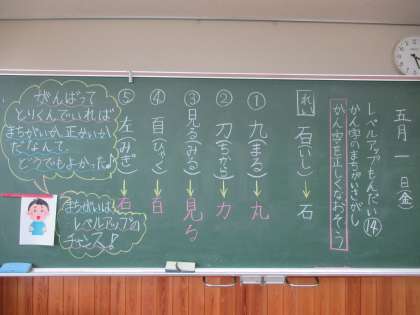 五月一日(金)
レベルアップもんだい⑭
かん字のまちがいさがし
かん字を正しくなおそう
れい (いし)→石
① 九(まる)→丸
② 刀(ちから)→力
③ (みる)→見る
④ (ひゃく)→百
⑤ 左(みぎ)→右
がんばって
とりくんでいれば
まちがいか、正かいか
だなんて、
どうでもよかったよ♪
まちがいは、
レベルアップの
チャンス!